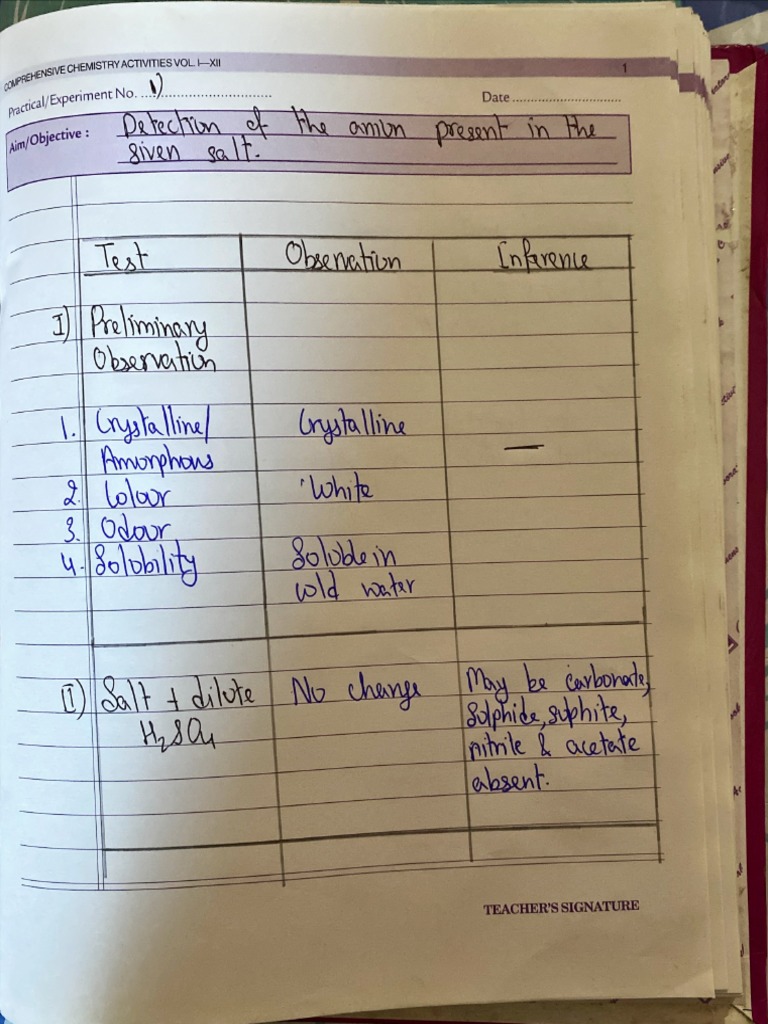 COMPREHENSIVE CHEMISTRY ACTIVITIES VOL. I—XII 1
Practical/Experiment No. ...1)............................ Date ..............................
Aim/Objective : Detection of the anion present in the
given salt.
Test Observation Inference
I) Preliminary
Observation
1. Crystalline/ Crystalline
Amorphous —
2. Colour White
3. Odour
4. Solobility Soloble in
cold water
II) Salt + dilute No change May be carbonate,
H₂SO₄ Sulphide, suphite,
nitrile & acetate
absent.
TEACHER'S SIGNATURE